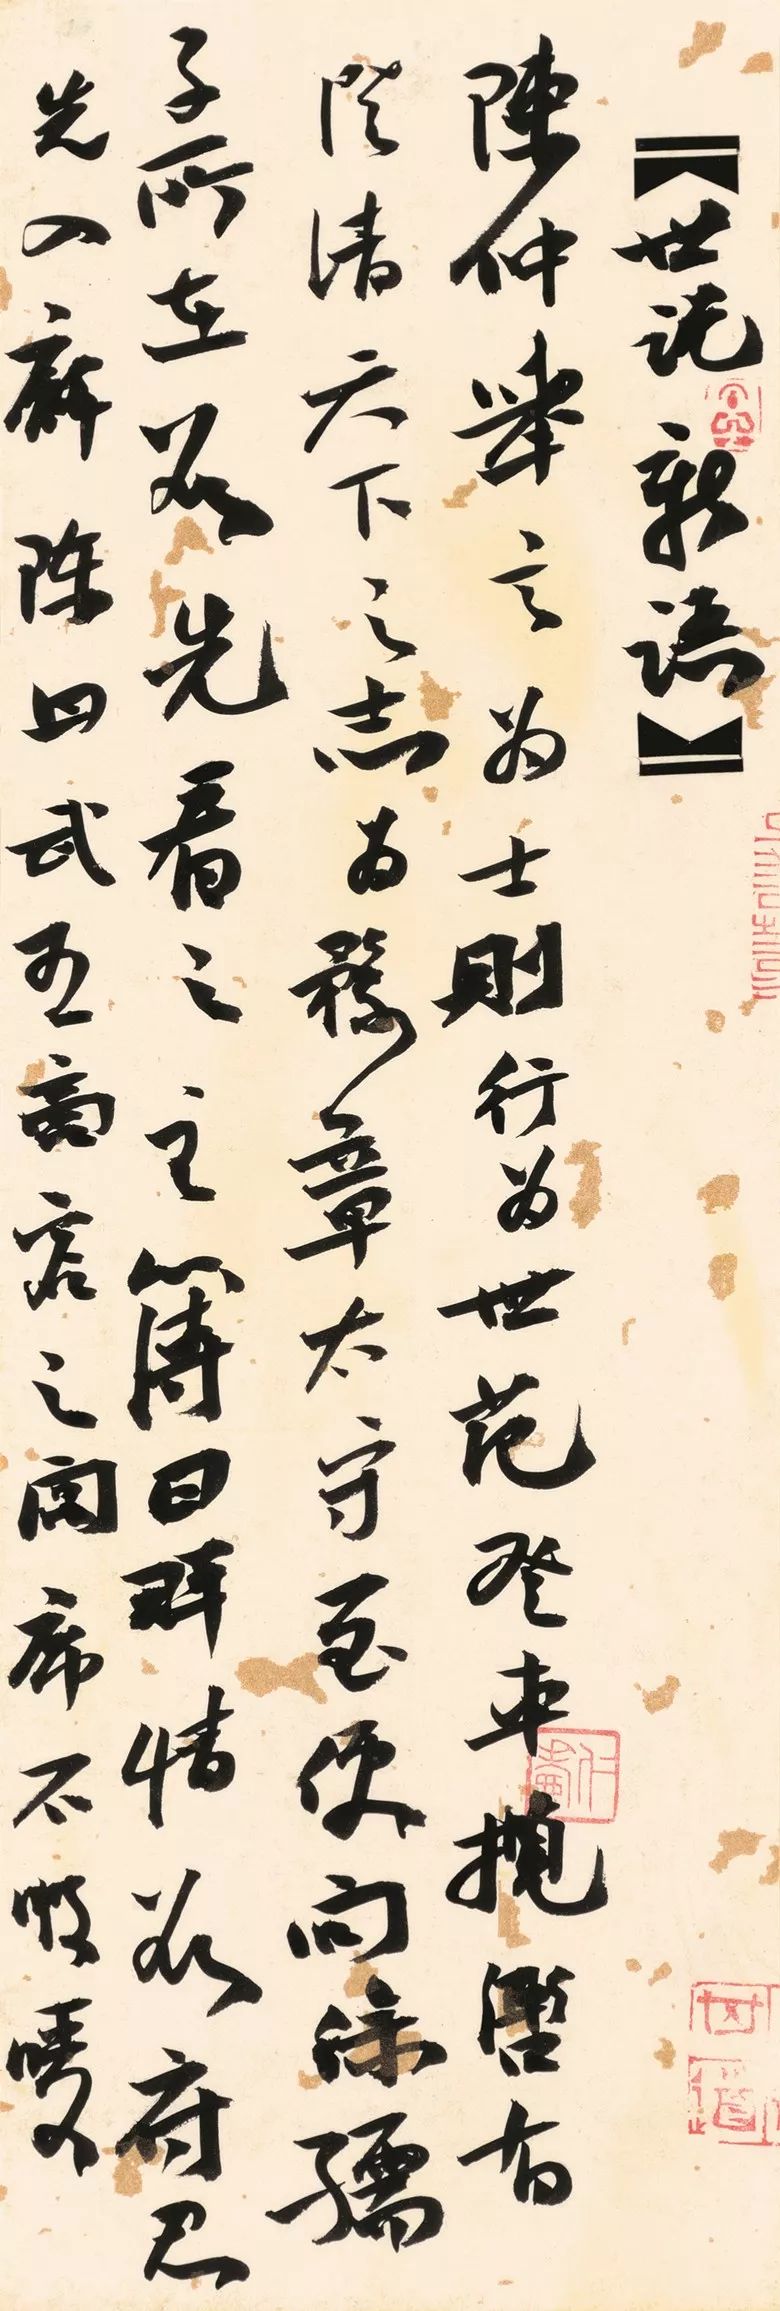 【世说新语】
陳仲舉言为士則行为世范登车攬轡有
澄清天下之志为豫章太守至便问徐孺
子所在欲先看之主簿曰群情欲府君
先入廨陈曰武王式商容之闾席不暇暖